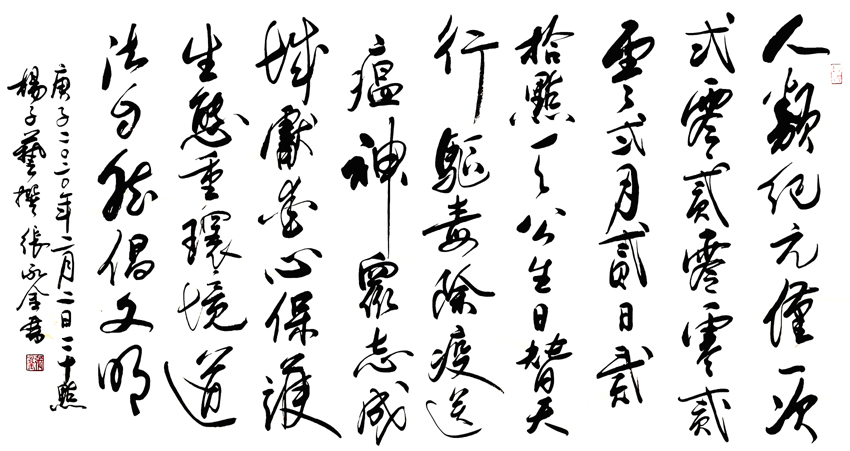 人類紀元僅一次
弍零貳零零貳
零弍月貳日貳
拾點天公生日替天
行驅毒除疫送
瘟神眾志成
城獻愛心保護
生態重環境道
法自然倡文明
庚子二〇二〇年二月二日二十點
楊子藝撰張永金書